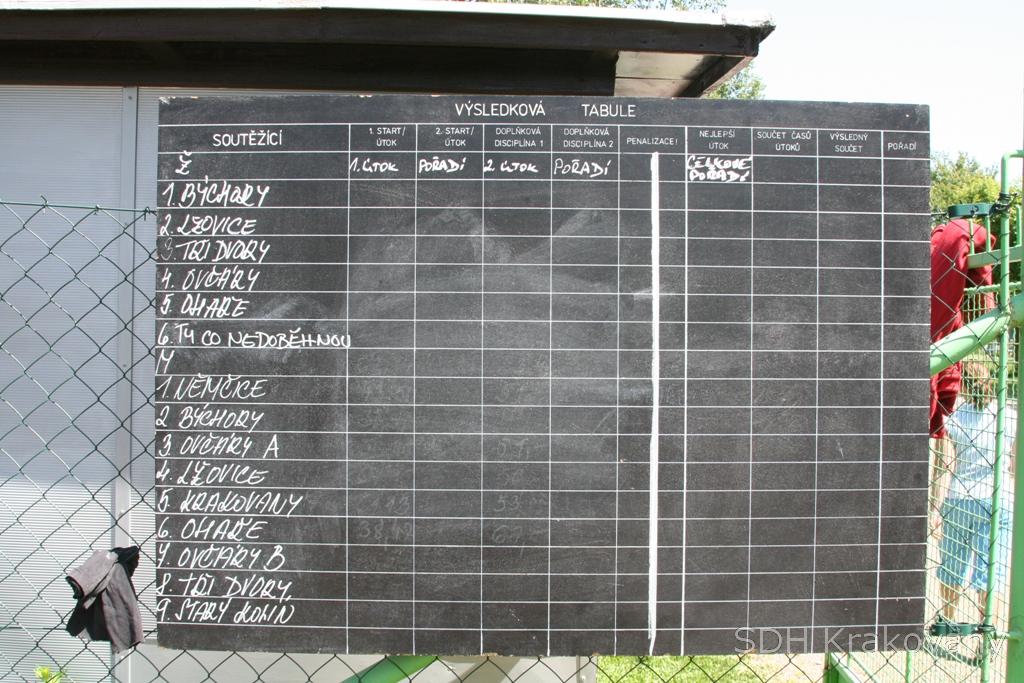 VÝSLEDKOVÁ TABULE
SOUTĚŽÍCÍ 1. START/ ÚTOK 2. START/ ÚTOK DOPLŇKOVÁ DISCIPLÍNA 1 DOPLŇKOVÁ DISCIPLÍNA 2 PENALIZACE! NEJLEPŠÍ ÚTOK SOUČET ČASŮ ÚTOKŮ VÝSLEDNÝ SOUČET POŘADÍ
Ž 1. ÚTOK POŘADÍ 2. ÚTOK POŘADÍ CELKOVÉ POŘADÍ
1. BÝCHORY
2. LŽOVICE
3. TŘI DVORY
4. OVČÁRY
5. OHAŘE
6. TY CO NEDOBĚHNOU
M
1. NĚMČICE
2 BÝCHORY
3 OVČÁRY A
4. LŽOVICE
5 KRAKOVANY
6. OHAŘE
7. OVČÁRY B
8. TŘI DVORY
9. STARÝ KOLÍN
SDH Krakovany